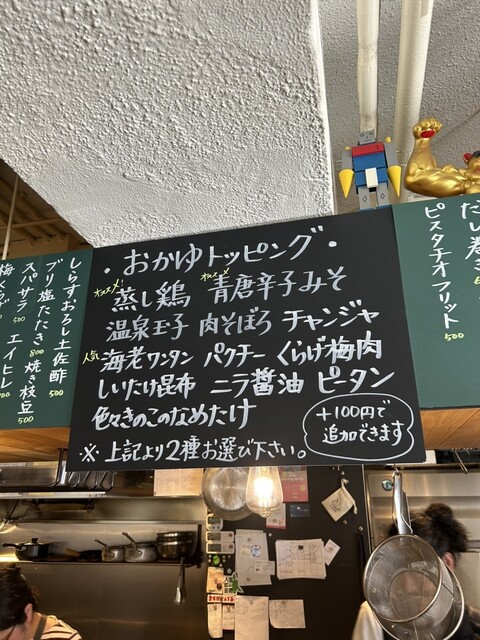 ・おかゆトッピング・
オススメ! 蒸し鶏 オススメ 青唐辛子みそ
温泉玉子 肉そぼろ チャンジャ
人気 海老ワンタン パクチー くらげ梅肉
しいたけ昆布 ニラ醤油 ピータン
色々きのこのなめたけ
※上記より2種お選び下さい。
+100円で
追加できます
だし巻き
ピスタチオフリット
500
しらすおろし土佐酢
ブリ塩たたき 800
スパサラ 焼き枝豆
500
エイヒレ